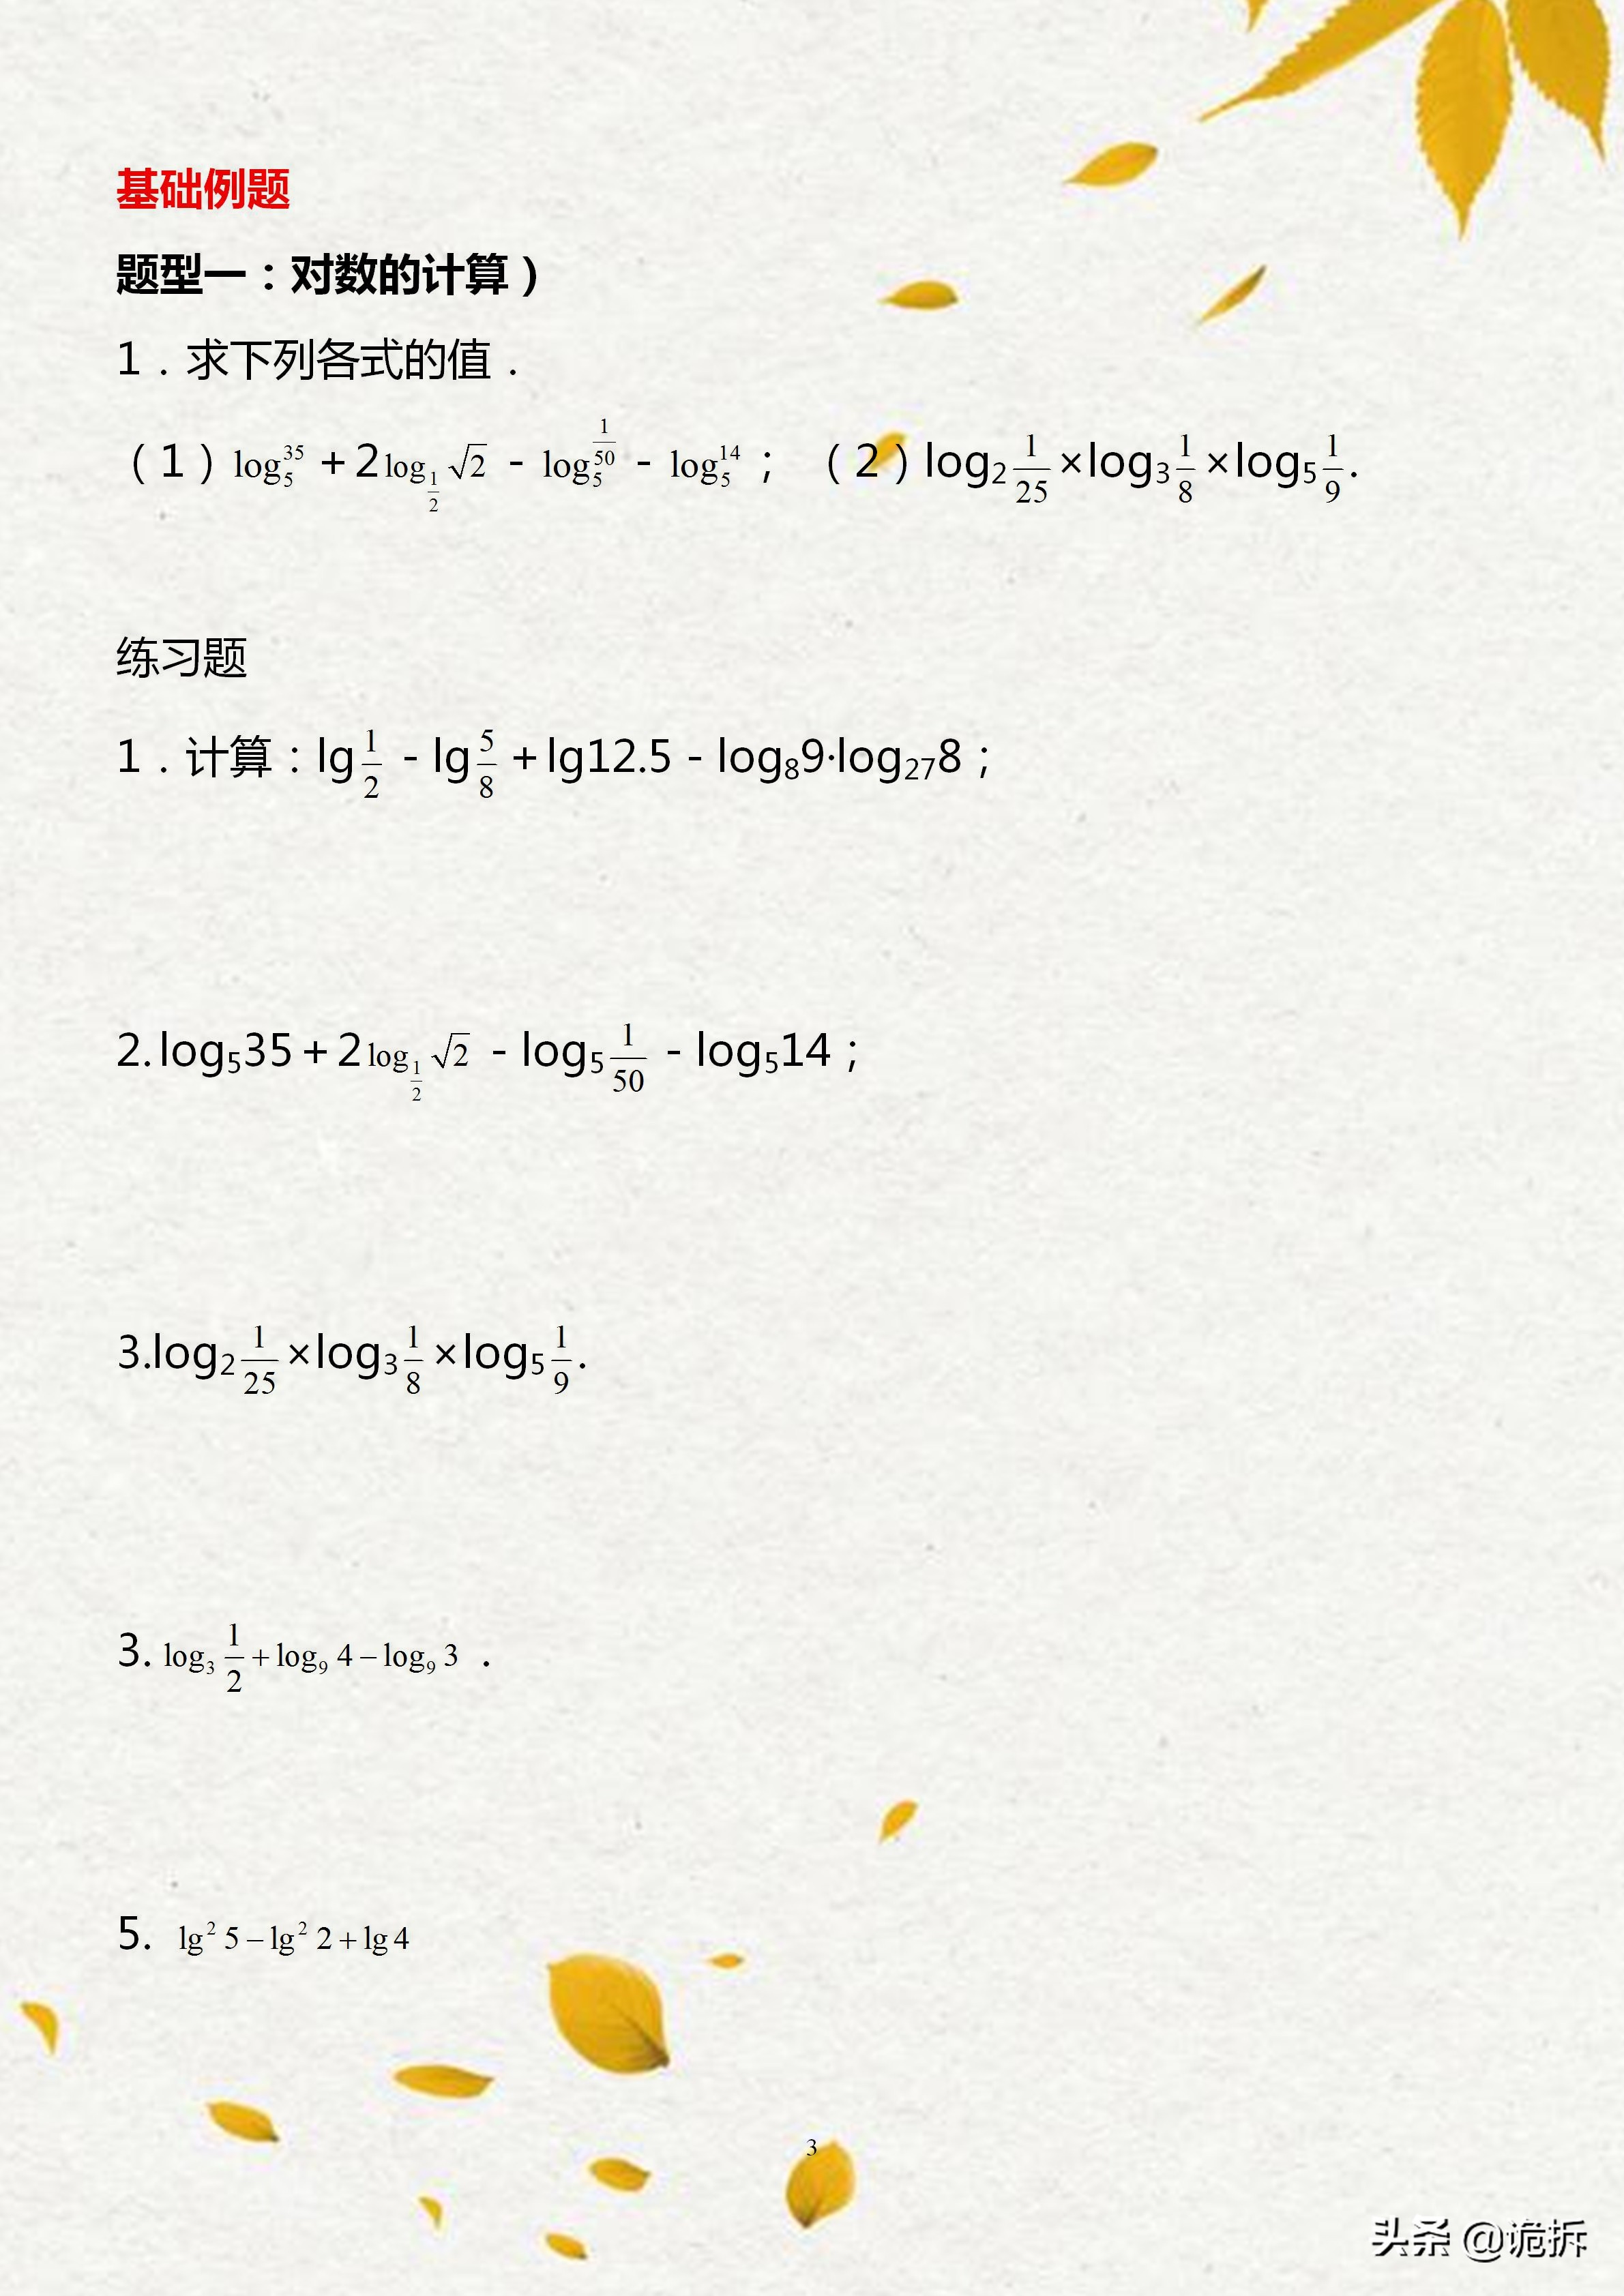 基础例题
题型一：对数的计算）
1．求下列各式的值．
（1）log₅³⁵＋2log_{1/2}√2－log₅^{1/50}－log₅¹⁴； （2）log₂1/25×log₃1/8×log₅1/9.
练习题
1．计算：lg1/2－lg5/8＋lg12.5－log₈9·log₂₇8；
2.log₅35＋2log_{1/2}√2－log₅1/50－log₅14；
3.log₂1/25×log₃1/8×log₅1/9.
3. log₃1/2+log₉4−log₉3 .
5. lg²5−lg²2+lg4
3
头条 @诡拆